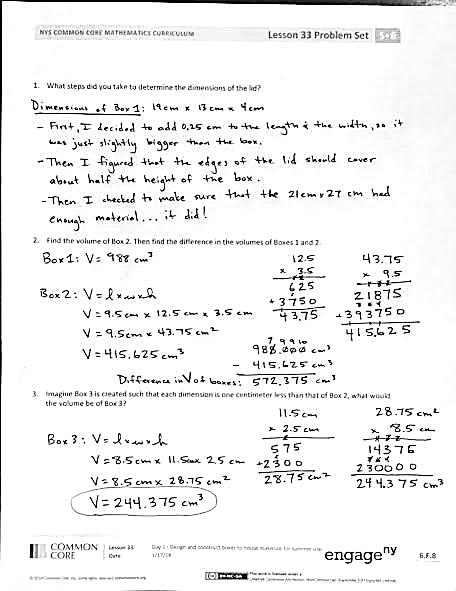 NYS COMMON CORE MATHEMATICS CURRICULUM
Lesson 33 Problem Set 5•6
1. What steps did you take to determine the dimensions of the lid?
Dimensions of Box 1: 19cm x 13cm x 4cm
- First, I decided to add 0.25 cm to the length & the width, so it
was just slightly bigger than the box.
- Then I figured that the edges of the lid should cover
about half the height of the box.
- Then I checked to make sure that the 21cm x 27 cm had
enough material... it did!
2. Find the volume of Box 2. Then find the difference in the volumes of Boxes 1 and 2.
Box 1: V = 988 cm³
Box 2: V = l x w x h
V = 9.5cm x 12.5 cm x 3.5 cm
V = 9.5cm x 43.75 cm²
V = 415.625 cm³
12.5
x 3.5
625
+ 3750
43.75
43.75
x 9.5
21875
+393750
415.625
988.000 cm³
- 415.625 cm³
Difference in V of boxes: 572.375 cm³
3. Imagine Box 3 is created such that each dimension is one centimeter less than that of Box 2, what would
the volume be of Box 3?
Box 3: V = l x w x h
V = 8.5cm x 11.5cm x 2.5 cm
V = 8.5cm x 28.75 cm²
V = 244.375 cm³
11.5cm
x 2.5 cm
575
+2300
28.75 cm²
28.75 cm²
x 8.5 cm
14375
230000
244.375 cm³
COMMON
CORE
Lesson 33
Date
Day 1 - Design and construct boxes to house materials for summer use
1/17/14
engage ny
6.F.8